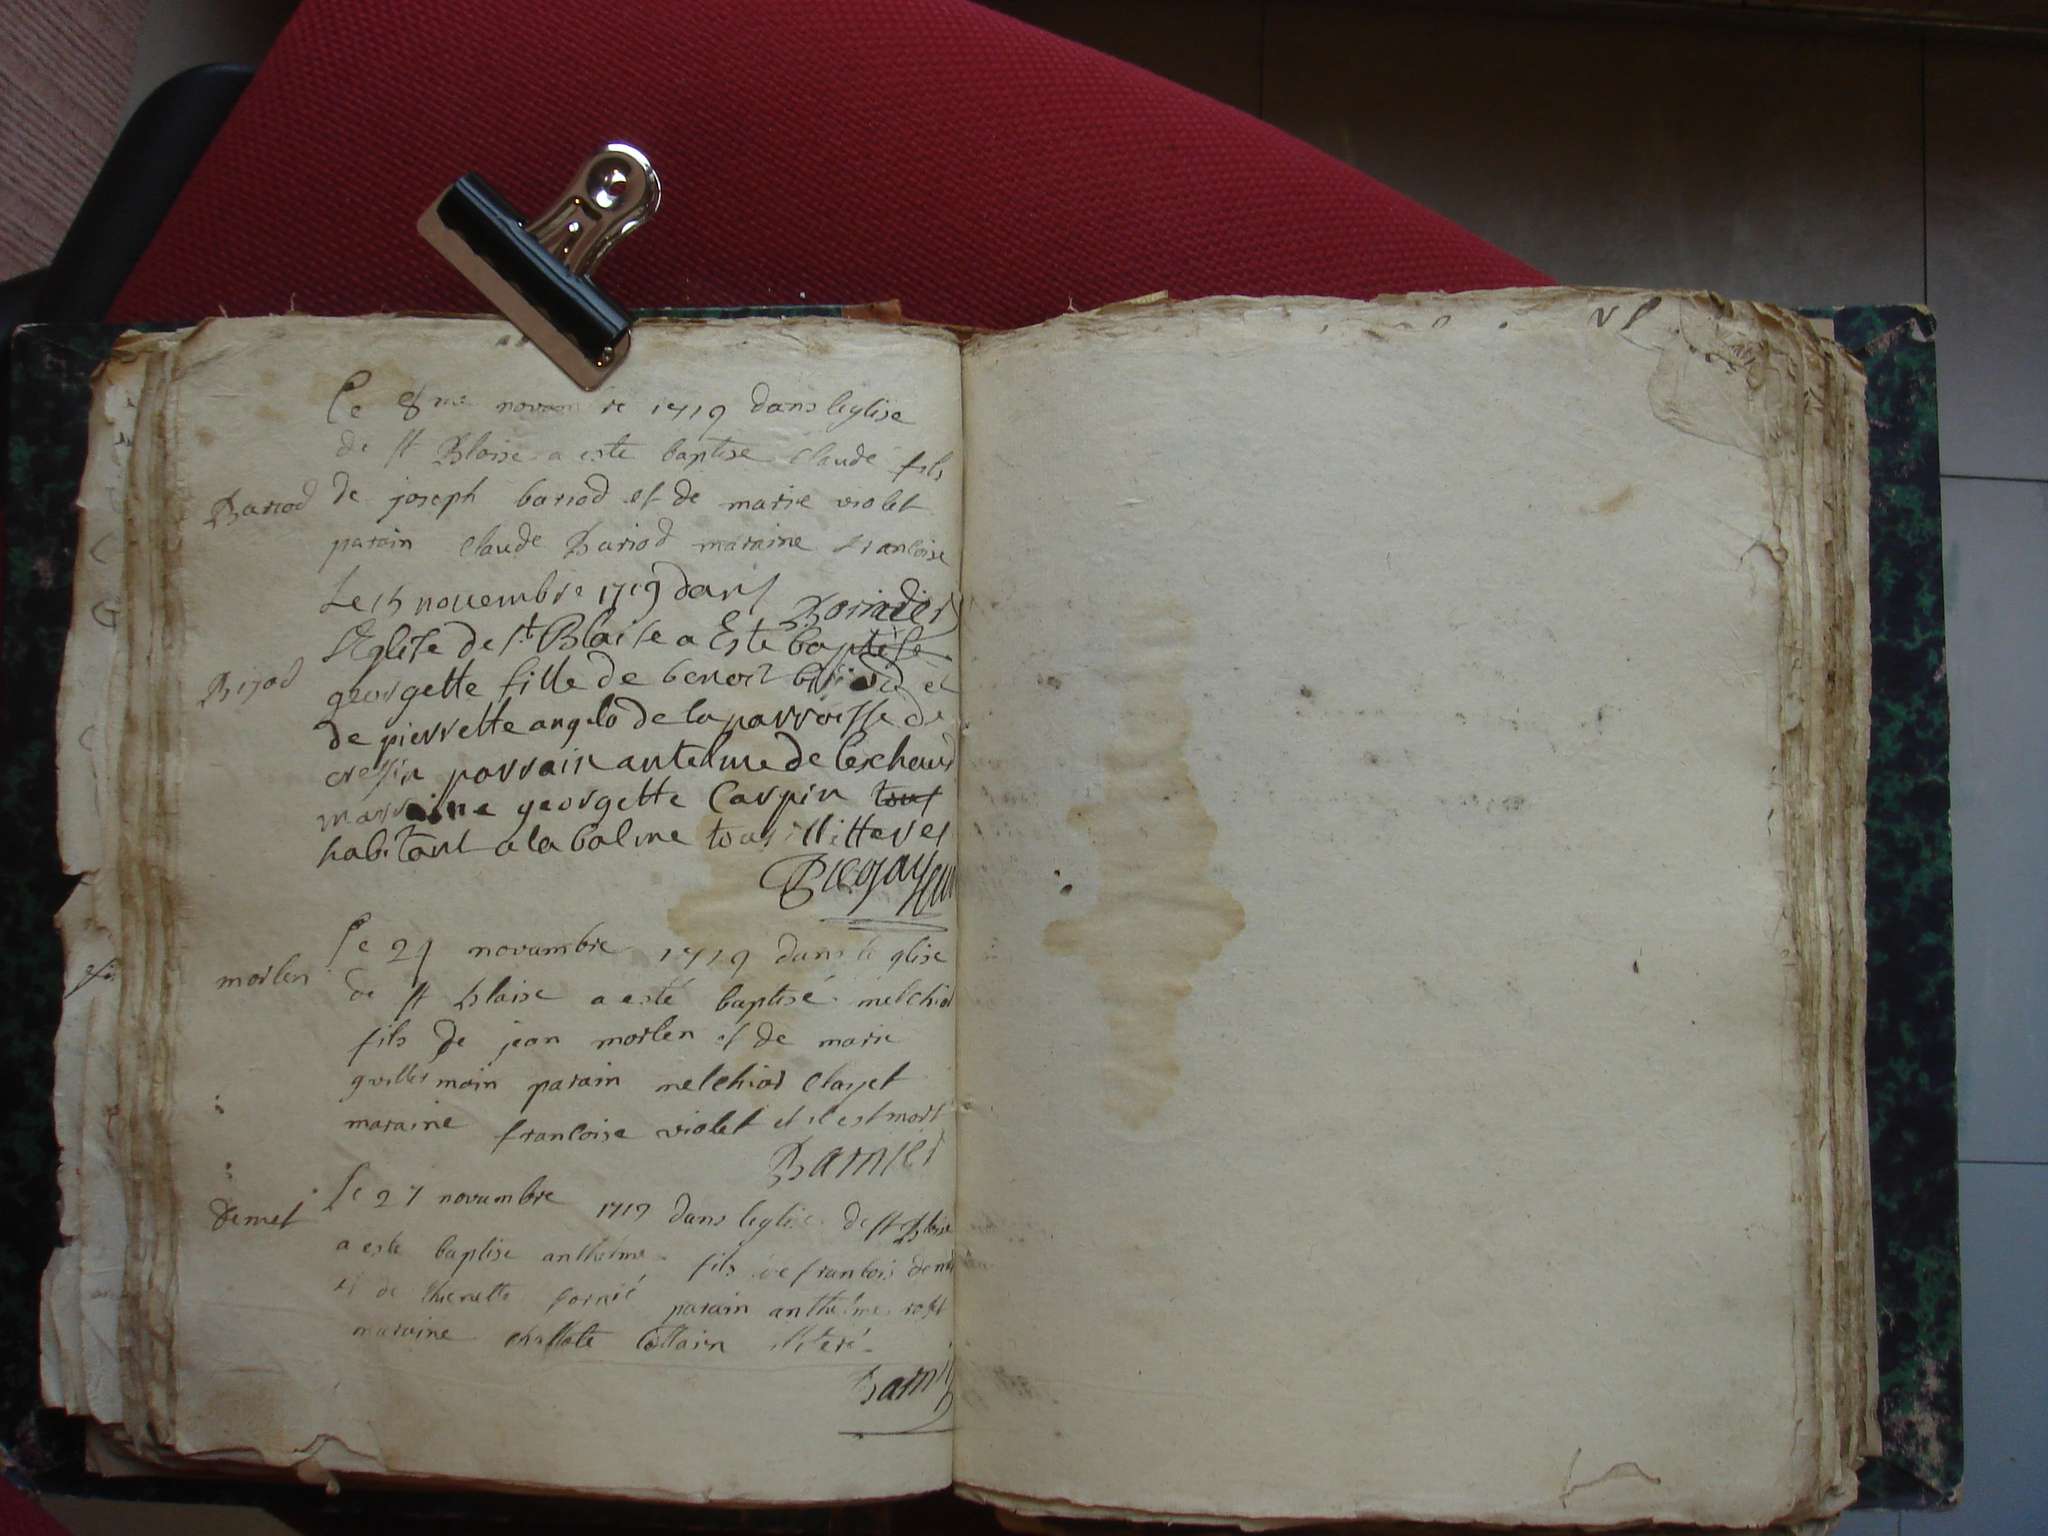 Le 8me novembre 1719 dans leglise
de st Blaise a este baptise claude fils
Bariod
de joseph bariod et de marie violet
parain claude Bariod maraine francoise
Le 15 novembre 1719 dans
l'Eglise de st Blaise a Este baptise
Bijod
georgette fille de benoit et
de pierrette angelo de la parroisse de
cressin parrain antelme de leschaud
marraine georgette Carpin tous
habitant a la balme tous illitteres
Le 24 novambre 1719 dans le glise
morlen
de st blaise a esté baptisé melchior
fils de jean morlen et de marie
guillermain parain melchior clayet
maraine francoise violet et il est mort
Barnier
Le 27 novambre 1719 dans leglise de st Blaise
demet
a este baptise anthelme fils de francois demet
et de thienette parain anthelme
maraine illiteré
Barni